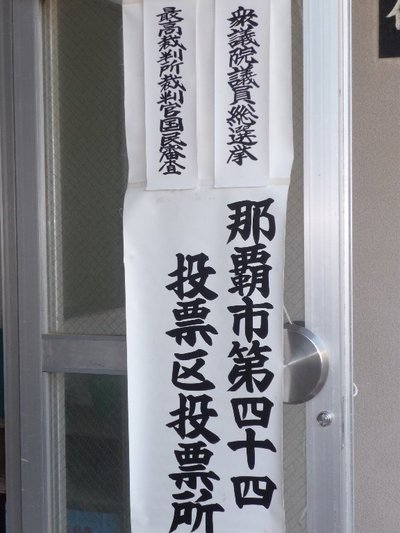 衆議院議員総選挙
最高裁判所裁判官国民審査
那覇市第四十四
投票区投票所